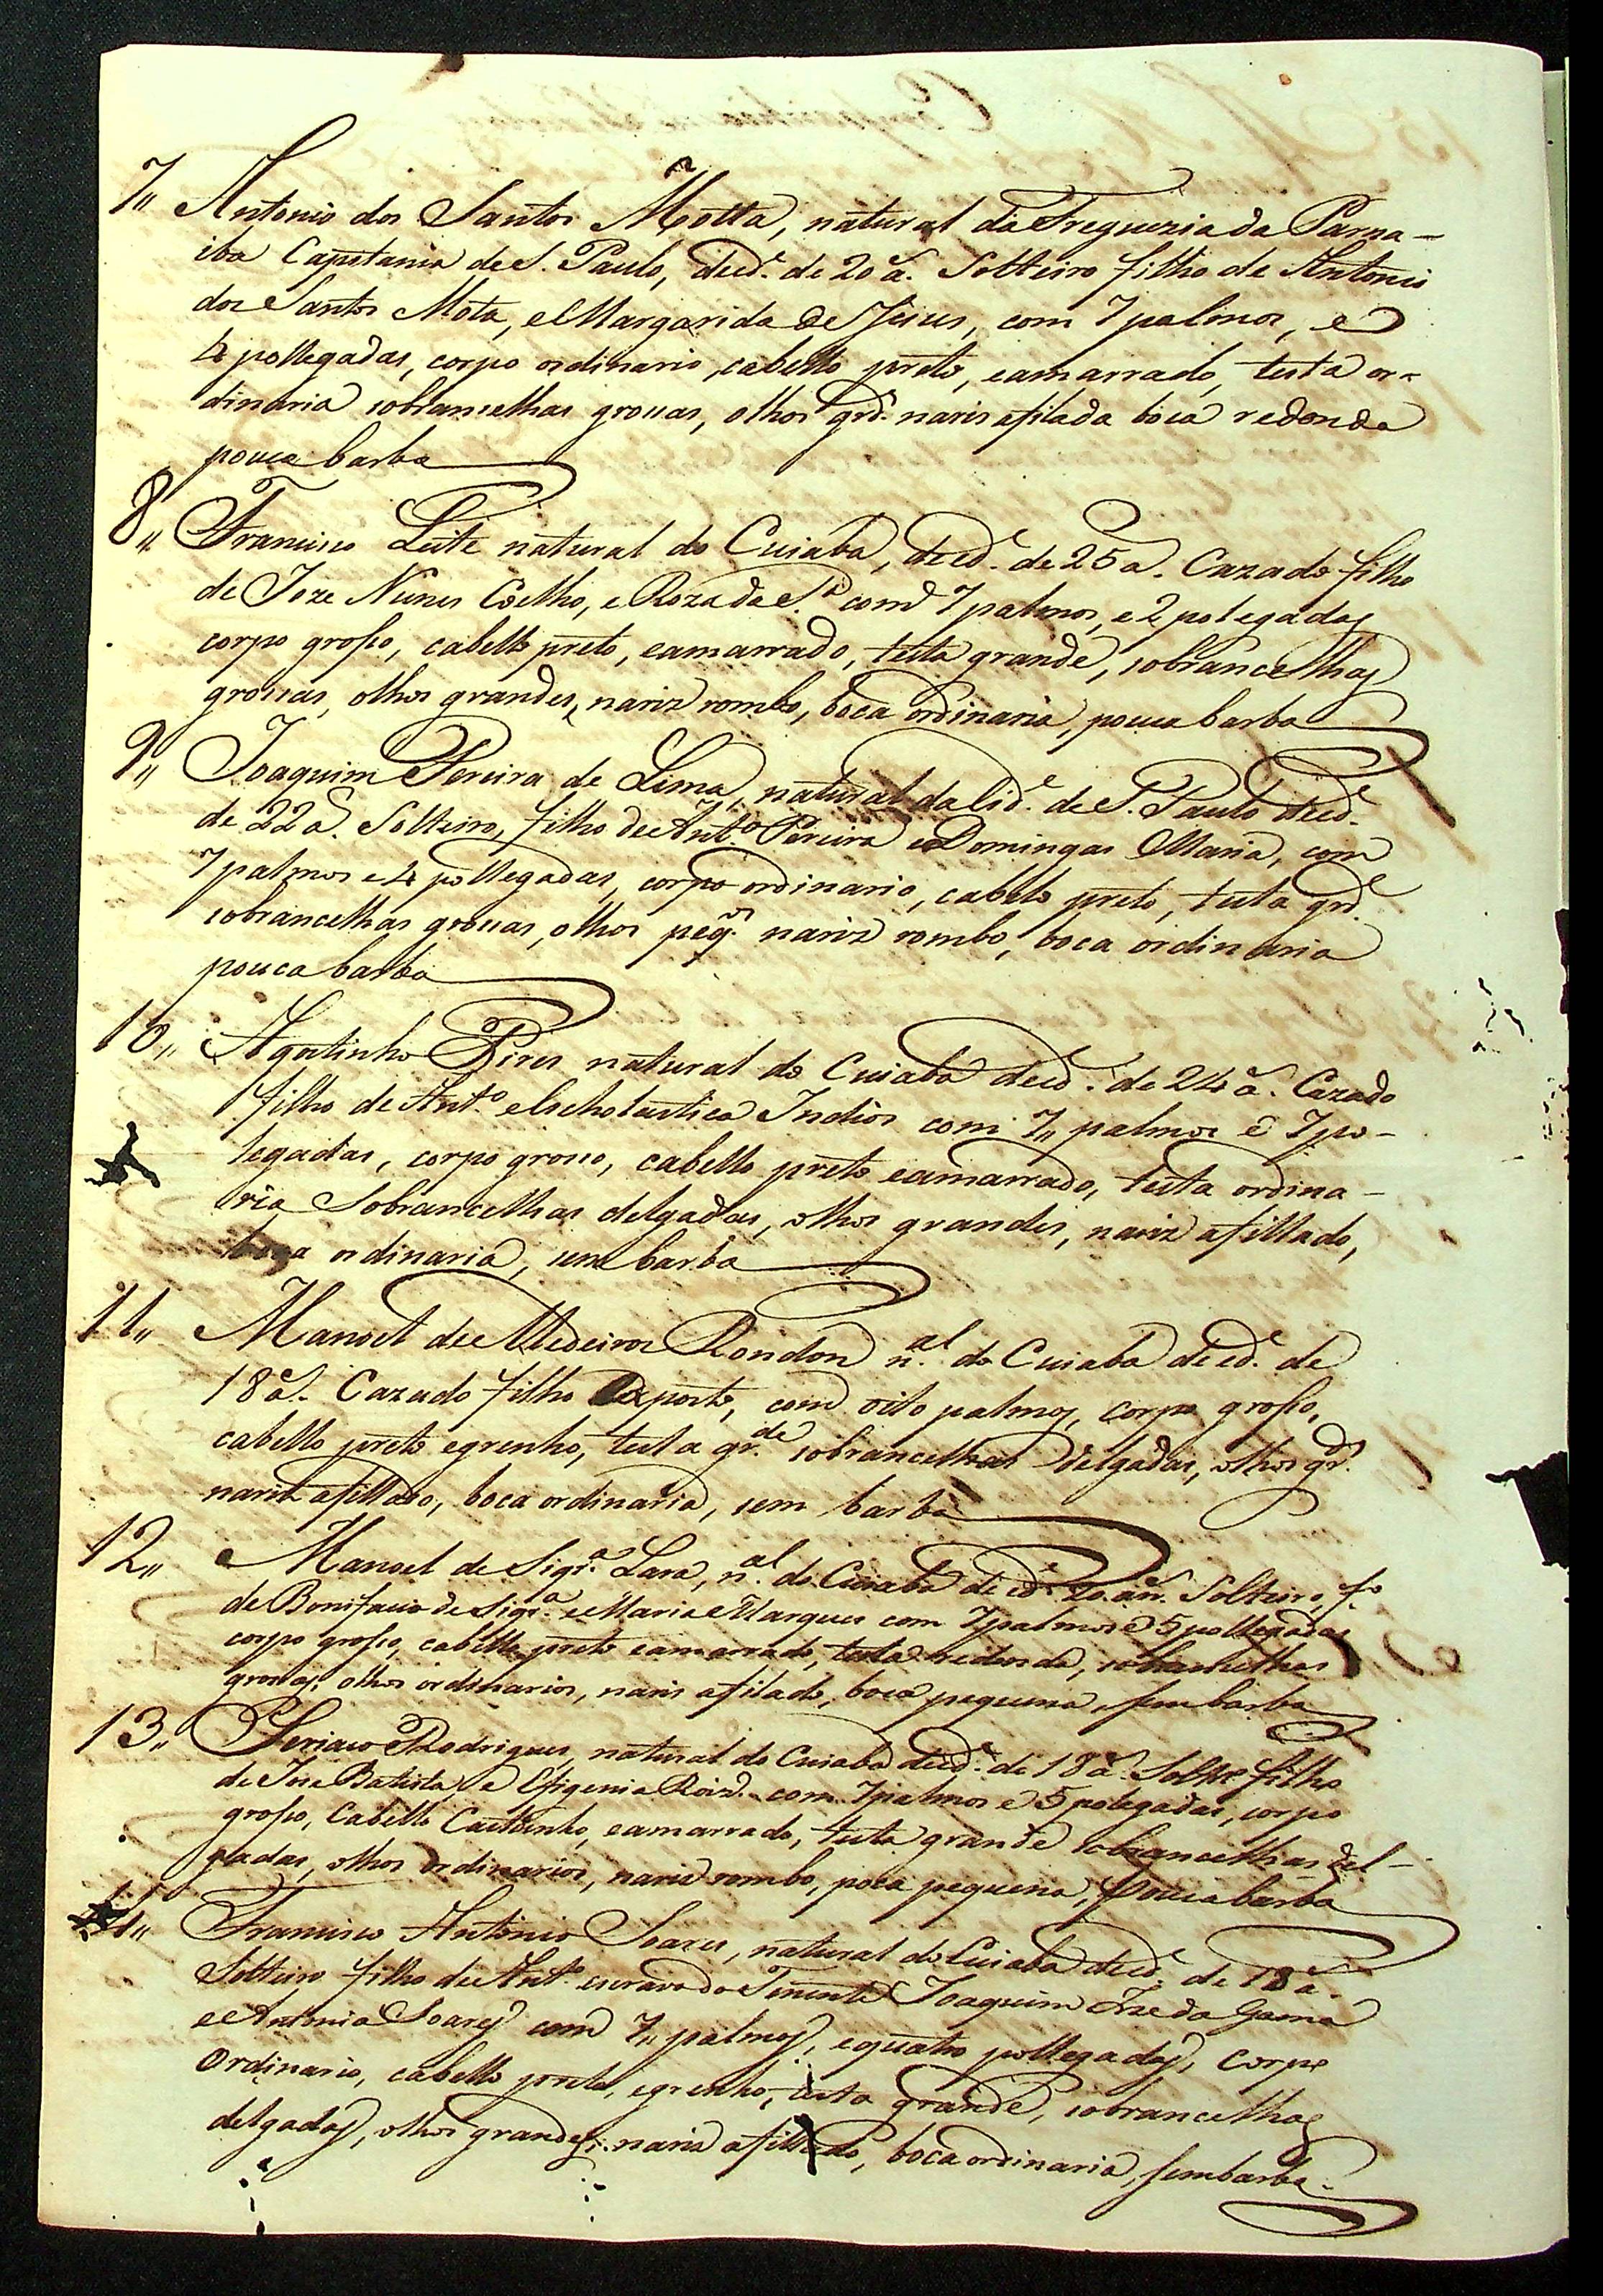 7,, Antonio dos Santos Motta, natural da Freguezia da Parna-
iba Capitania de S. Paulo, de id.e de 20 a.s Solteiro filho de Antonio
dos Santos Mota, e Margarida de Jesus, com 7 palmos, e
4 pollegadas, corpo ordinario, cabello preto, eamarrado, testa or-
dinaria sobrancelhas grossas, olhos grd.es naris afilada boca redonda
pouca barba
8,, Francisco Leite natural do Cuiaba, de id.e de 25 a. Cazado filho
de Joze Nunes Coelho, e Roza da S.a com 7 palmos, e 2 polegadas
corpo grosso, cabello preto, eamarrado, testa grande, sobrancelhas
grossas, olhos grandes, nariz rombo, boca ordinaria, pouca barba
9,, Joaquim Pereira de Lima, natural da Cid.e de S. Paulo de id.e
de 22 a.s Solteiro, filho de Ant.o Pereira e Domingas Maria, com
7 palmos e 4 pollegadas, corpo ordinario, cabelo preto, testa grd.e
sobrancelhas grossas, olhos peq.os nariz rombo, boca ordinaria
pouca barba
10,, Agostinho Pires natural do Cuiaba de id.e de 24 a.s Cazado
filho de Ant.o e Escholastica Indios com 7,, palmos e 7 po-
legadas, corpo grosso, cabello preto eamarrado, testa ordina-
ria Sobrancelhas delgadas, olhos grandes, nariz afillado,
boca ordinaria, sem barba
11,, Manoel de Medeiros Rondon n.al do Cuiaba de id.e de
18 a.s Cazado filho Exposto, com oito palmos, corpo grosso,
cabello preto egrenho, testa gr.de sobrancelhas delgadas, olhos gr.des
nariz afillado, boca ordinaria, sem barba
12,, Manoel de Siqr.a Lara, n.al do Cuiaba de id.e 20 an.s Solteiro, f.o
de Bonifacio de Siqr.a e Maria Marques com 7 palmos e 5 pollegadas
corpo grosso, cabello preto eamarrado, testa redonda, sobrancelhas
grossas, olhos ordinarios, naris afilado, boca pequena, sem barba
13,, Rodrigues, natural do Cuiaba de id.e de 18 a.s Soltr.o filho
de Joze Batista, e Efigenia Roiz. com 7 palmos e 5 polegadas, corpo
grosso, Cabello Castanho, eamarrado, testa grande sobrancelhas del-
gadas, olhos ordinarios, nariz rombo, poca pequena, pouca barba
14,, Francisco Antonio Soares, natural do Cuiaba de id.e de 18 a.s
Solteiro filho de Ant.o escravo do Tenente Joaquim Joze da Gama
e Antonia Soares com 7,, palmos, equatro pollegadas, corpo
Ordinario, cabello preto, egrenho, testa grande, sobrancelhas
delgadas, olhos grandes, nariz afillado, boca ordinaria, sem barba.